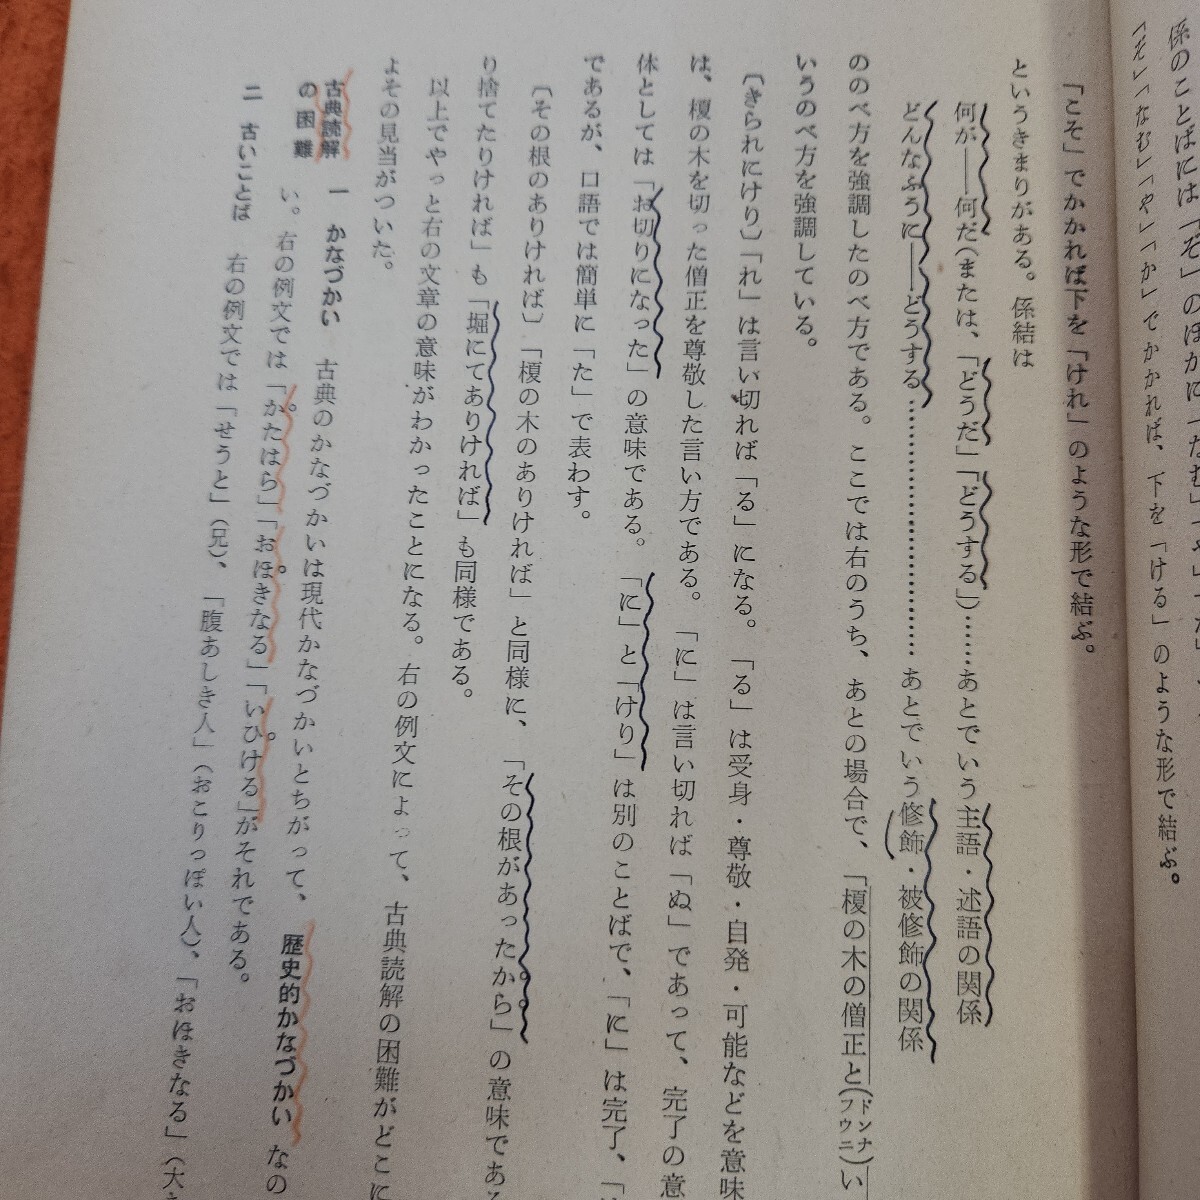 係のことばには「ぞ」のほかに「なむ」「や」「か」
「ぞ」「なむ」「や」「か」でかかれば、下を「ける」のような形で結ぶ。
「こそ」でかかれば下を「けれ」のような形で結ぶ。
というきまりがある。係結は
何が――何だ（または、「どうだ」「どうする」）……あとでいう主語・述語の関係
どんなふうに――どうする……………………あとでいう修飾・被修飾の関係
ののべ方を強調したのべ方である。ここでは右のうち、あとの場合で、「榎の木の僧正と（ドンナフウニ）い
いうのべ方を強調している。
〔きられにけり〕「れ」は言い切れば「る」になる。「る」は受身・尊敬・自発・可能などを意味
は、榎の木を切った僧正を尊敬した言い方である。「に」は言い切れば「ぬ」であって、完了の意
体としては「お切りになった」の意味である。「に」と「けり」は別のことばで、「に」は完了、「
であるが、口語では簡単に「た」で表わす。
〔その根のありければ〕「榎の木のありければ」と同様に、「その根があったから」の意味であ
り捨てたりければ」も「堀にてありければ」も同様である。
以上でやっと右の文章の意味がわかったことになる。右の例文によって、古典読解の困難がどこに
よその見当がついた。
古典読解
の困難
一 かなづかい 古典のかなづかいは現代かなづかいとちがって、歴史的かなづかいなの
い。右の例文では「かたはら」「おほきなる」「いひける」がそれである。
二 古いことば 右の例文では「せうと」（兄）、「腹あしき人」（おこりっぽい人）、「おほきなる」（大